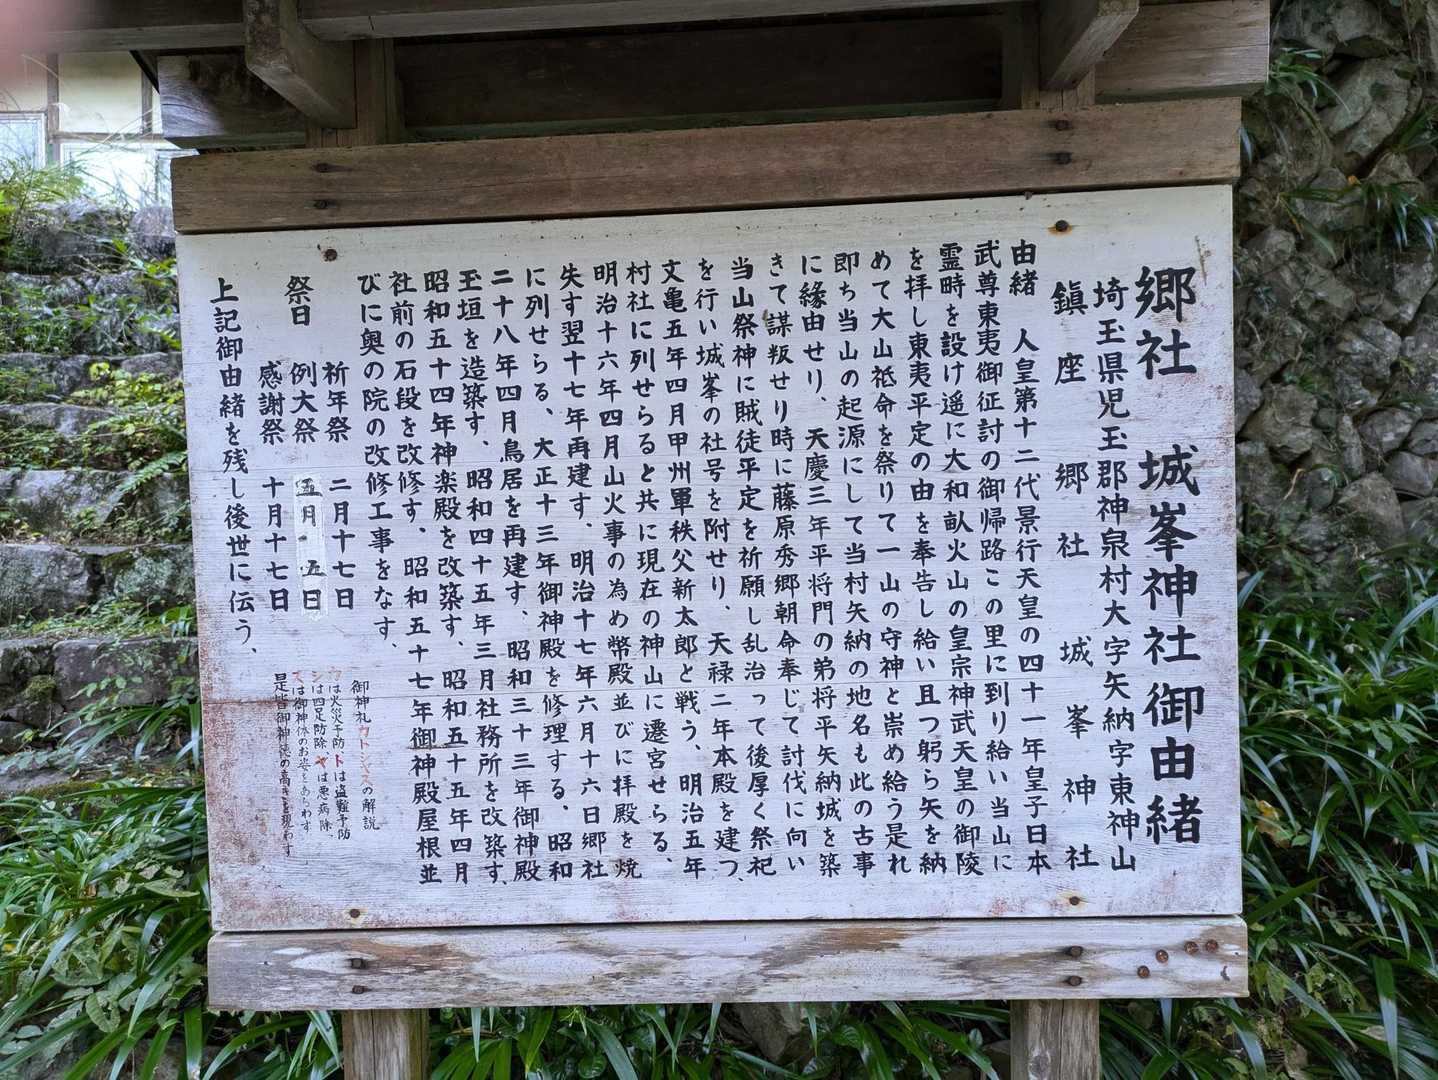 郷社 城峯神社御由緒
埼玉県児玉郡神泉村大字矢納字東神山
鎮座 郷社 城峯神社
由緒 人皇第十二代景行天皇の四十一年皇子日本
武尊東夷御征討の御帰路この里に到り給い当山に
霊時を設け遥に大和畝火山の皇宗神武天皇の御陵
を拝し東夷平定の由を奉告し給い且つ躬ら矢を納
めて大山祗命を祭りて一山の守神と崇め給う是れ
即ち当山の起源にして当村矢納の地名も此の古事
に縁由せり、天慶三年平将門の弟将平矢納城を築
きて謀叛せり時に藤原秀郷朝命奉じて討伐に向い
当山祭神に賊徒平定を祈願し乱治って後厚く祭祀
を行い城峯の社号を附せり、天禄二年本殿を建つ、
文亀五年四月甲州軍秩父新太郎と戦う、明治五年
村社に列せらると共に現在の神山に遷宮せらる、
明治十六年四月山火事の為め幣殿並びに拝殿を焼
失す翌十七年再建す、明治十七年六月十六日郷社
に列せらる、大正十三年御神殿を修理する、昭和
二十八年四月鳥居を再建す、昭和三十三年御神殿
玉垣を造築す、昭和四十五年三月社務所を改築す、
昭和五十四年神楽殿を改築す、昭和五十五年四月
社前の石段を改修す、昭和五十七年御神殿屋根並
びに奥の院の改修工事をなす、
祭日 祈年祭 二月十七日
例大祭 五月五日
感謝祭 十月十七日
上記御由緒を残し後世に伝う、
御神札カトシヤスの解説
カは火災予防、トは盗難予防
シは四足防除、ヤは悪病除
スは御神体のお姿をあらわす
是皆御神徳の高きを現わす